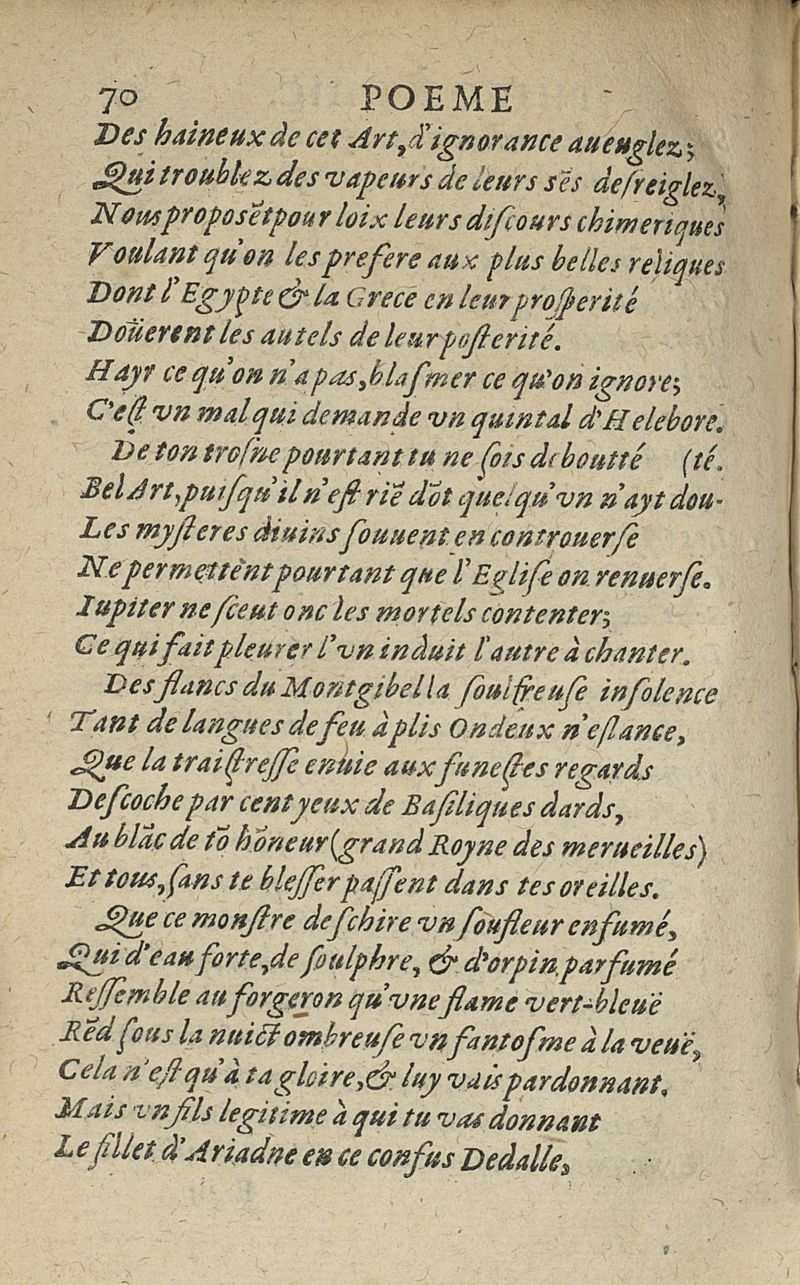 70 POEME
Des haineux de cet Art, d'ignorance aueuglez;
Qui troublez des vapeurs de leurs sẽs desreiglez,
Nous proposẽt pour loix leurs discours chimeriques
Voulant qu'on les prefere aux plus belles reliques
Dont l'Egypte & la Grece en leur prosperité
Doüerent les autels de leur posterité.
Hayr ce qu'on n'a pas, blasmer ce qu'on ignore;
C'est vn mal qui demande vn quintal d'Helebore.
De ton trosne pourtant tu ne sois deboutté (té.
Bel Art, puisqu'il n'est riẽ dõt quelqu'vn n'ayt dou-
Les mysteres diuins souuent en controuerse
Ne permettent pourtant que l'Eglise on renuerse.
Iupiter ne sceut onc les mortels contenter;
Ce qui fait pleurer l'vn induit l'autre à chanter.
Des flancs du Montgibel la soulfreuse insolence
Tant de langues de feu à plis Ondeux n'eslance,
Que la traistresse enuie aux funestes regards
Descoche par cent yeux de Basiliques dards,
Au blãc de tõ hõneur (grand Royne des merueilles)
Et tous, sans te blesser passent dans tes oreilles.
Que ce monstre deschire vn soufleur enfumé,
Qui d'eau forte, de soulphre, & d'orpin parfumé
Ressemble au forgeron qu'vne flame vert-bleuë
Rẽd sous la nuict ombreuse vn fantosme à la veuë,
Cela n'est qu'à ta gloire, & luy vais pardonnant.
Mais vn fils legitime à qui tu vas donnant
Le fillet d'Ariadne en ce confus Dedalle,